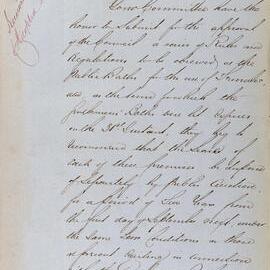 Your Committee have the
honor to Submit for the approval
of the Council a series of Rules and
Regulations to be observed, at the
Public Baths for the use of
and as the term for which the
Gentlemen's Baths were let Expires
on the 31st Instant, they beg to
recommend that the Leases of
each of these premises be disposed
of Separately by Public Auction
for a period of Two Years from
the first day of September next, under
the Same Conditions as those
at present existing in connection